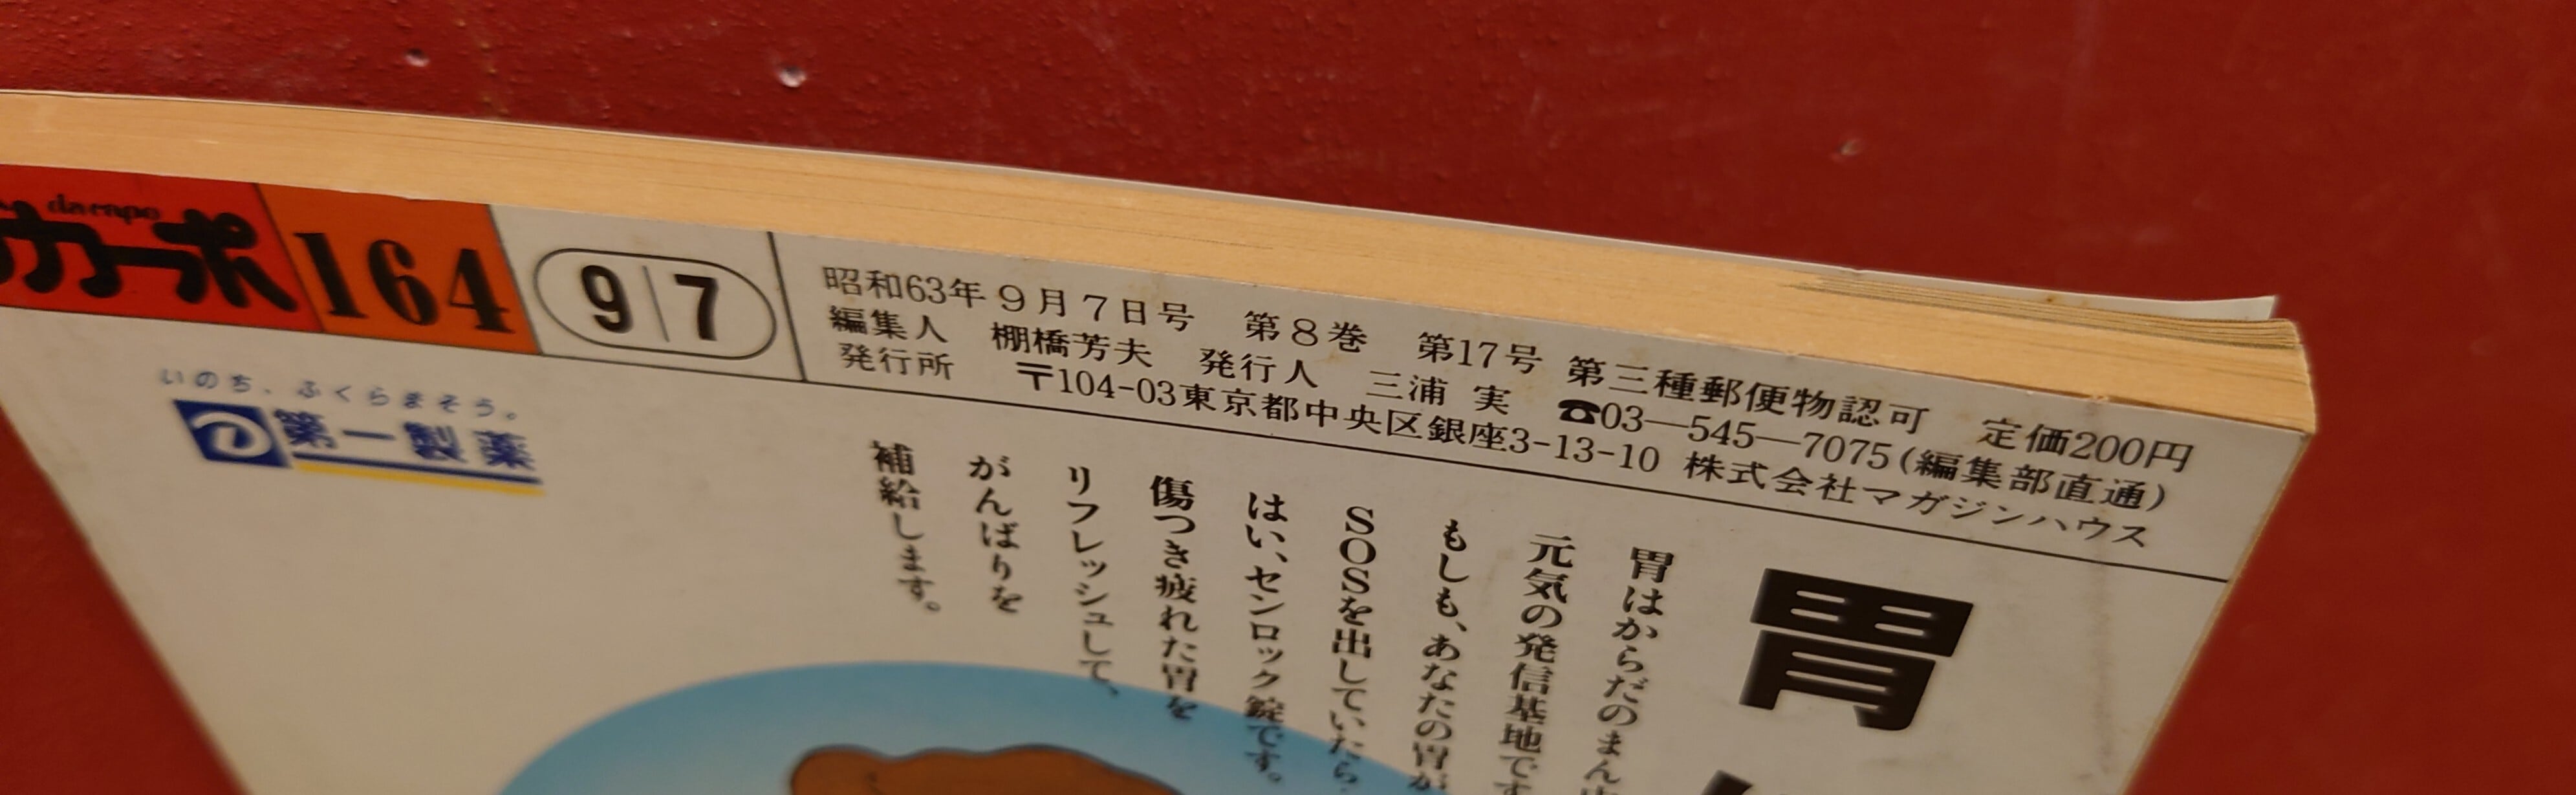 da capo
カーポ
164
9|7
昭和63年9月7日号 第8巻 第17号 第三種郵便物認可 定価200円
編集人 棚橋芳夫 発行人 三浦 実 ☎03―545―7075(編集部直通)
発行所 〒104-03東京都中央区銀座3-13-10 株式会社マガジンハウス
いのち、ふくらまそう。
第一製薬
胃
胃はからだのまん
元気の発信基地です
もしも、あなたの胃が
SOSを出していたら
はい、センロック錠です。
傷つき疲れた胃を
リフレッシュして、
がんばりを
補給します。